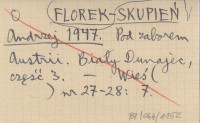 FLOREK-SKUPIEŃ
Andrzej 1947. Pod zaborem
Austrii. Biały Dunajec,
część 3. — Wieś
nr 27-28: 7.